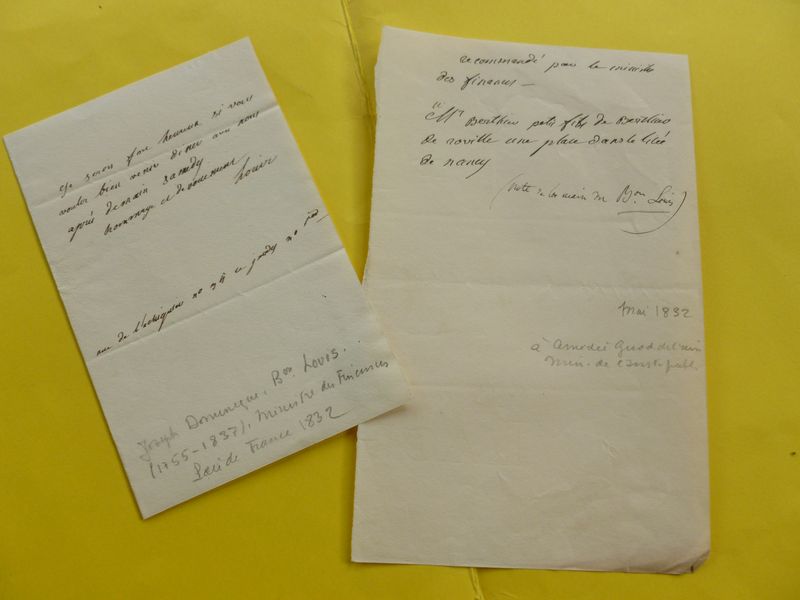 je serois fort heureux si vous
voulez bien venir diner avec nous
après demain samedy
hommage et dévouement
Louis
rue de l'echiquier no 36 ce jeudy 20
Joseph Dominique, Bon. Louis.
(1755-1837), Ministre des Finances
Pair de France 1832
recommandé par le ministre
des finances —
"Mr Berthier petit fils de Berthier
de roville une place dans le licée
de nancy
(note de la main du Bon. Louis)
Mai 1832
à Amédée
Min. de l'Inst. publ.